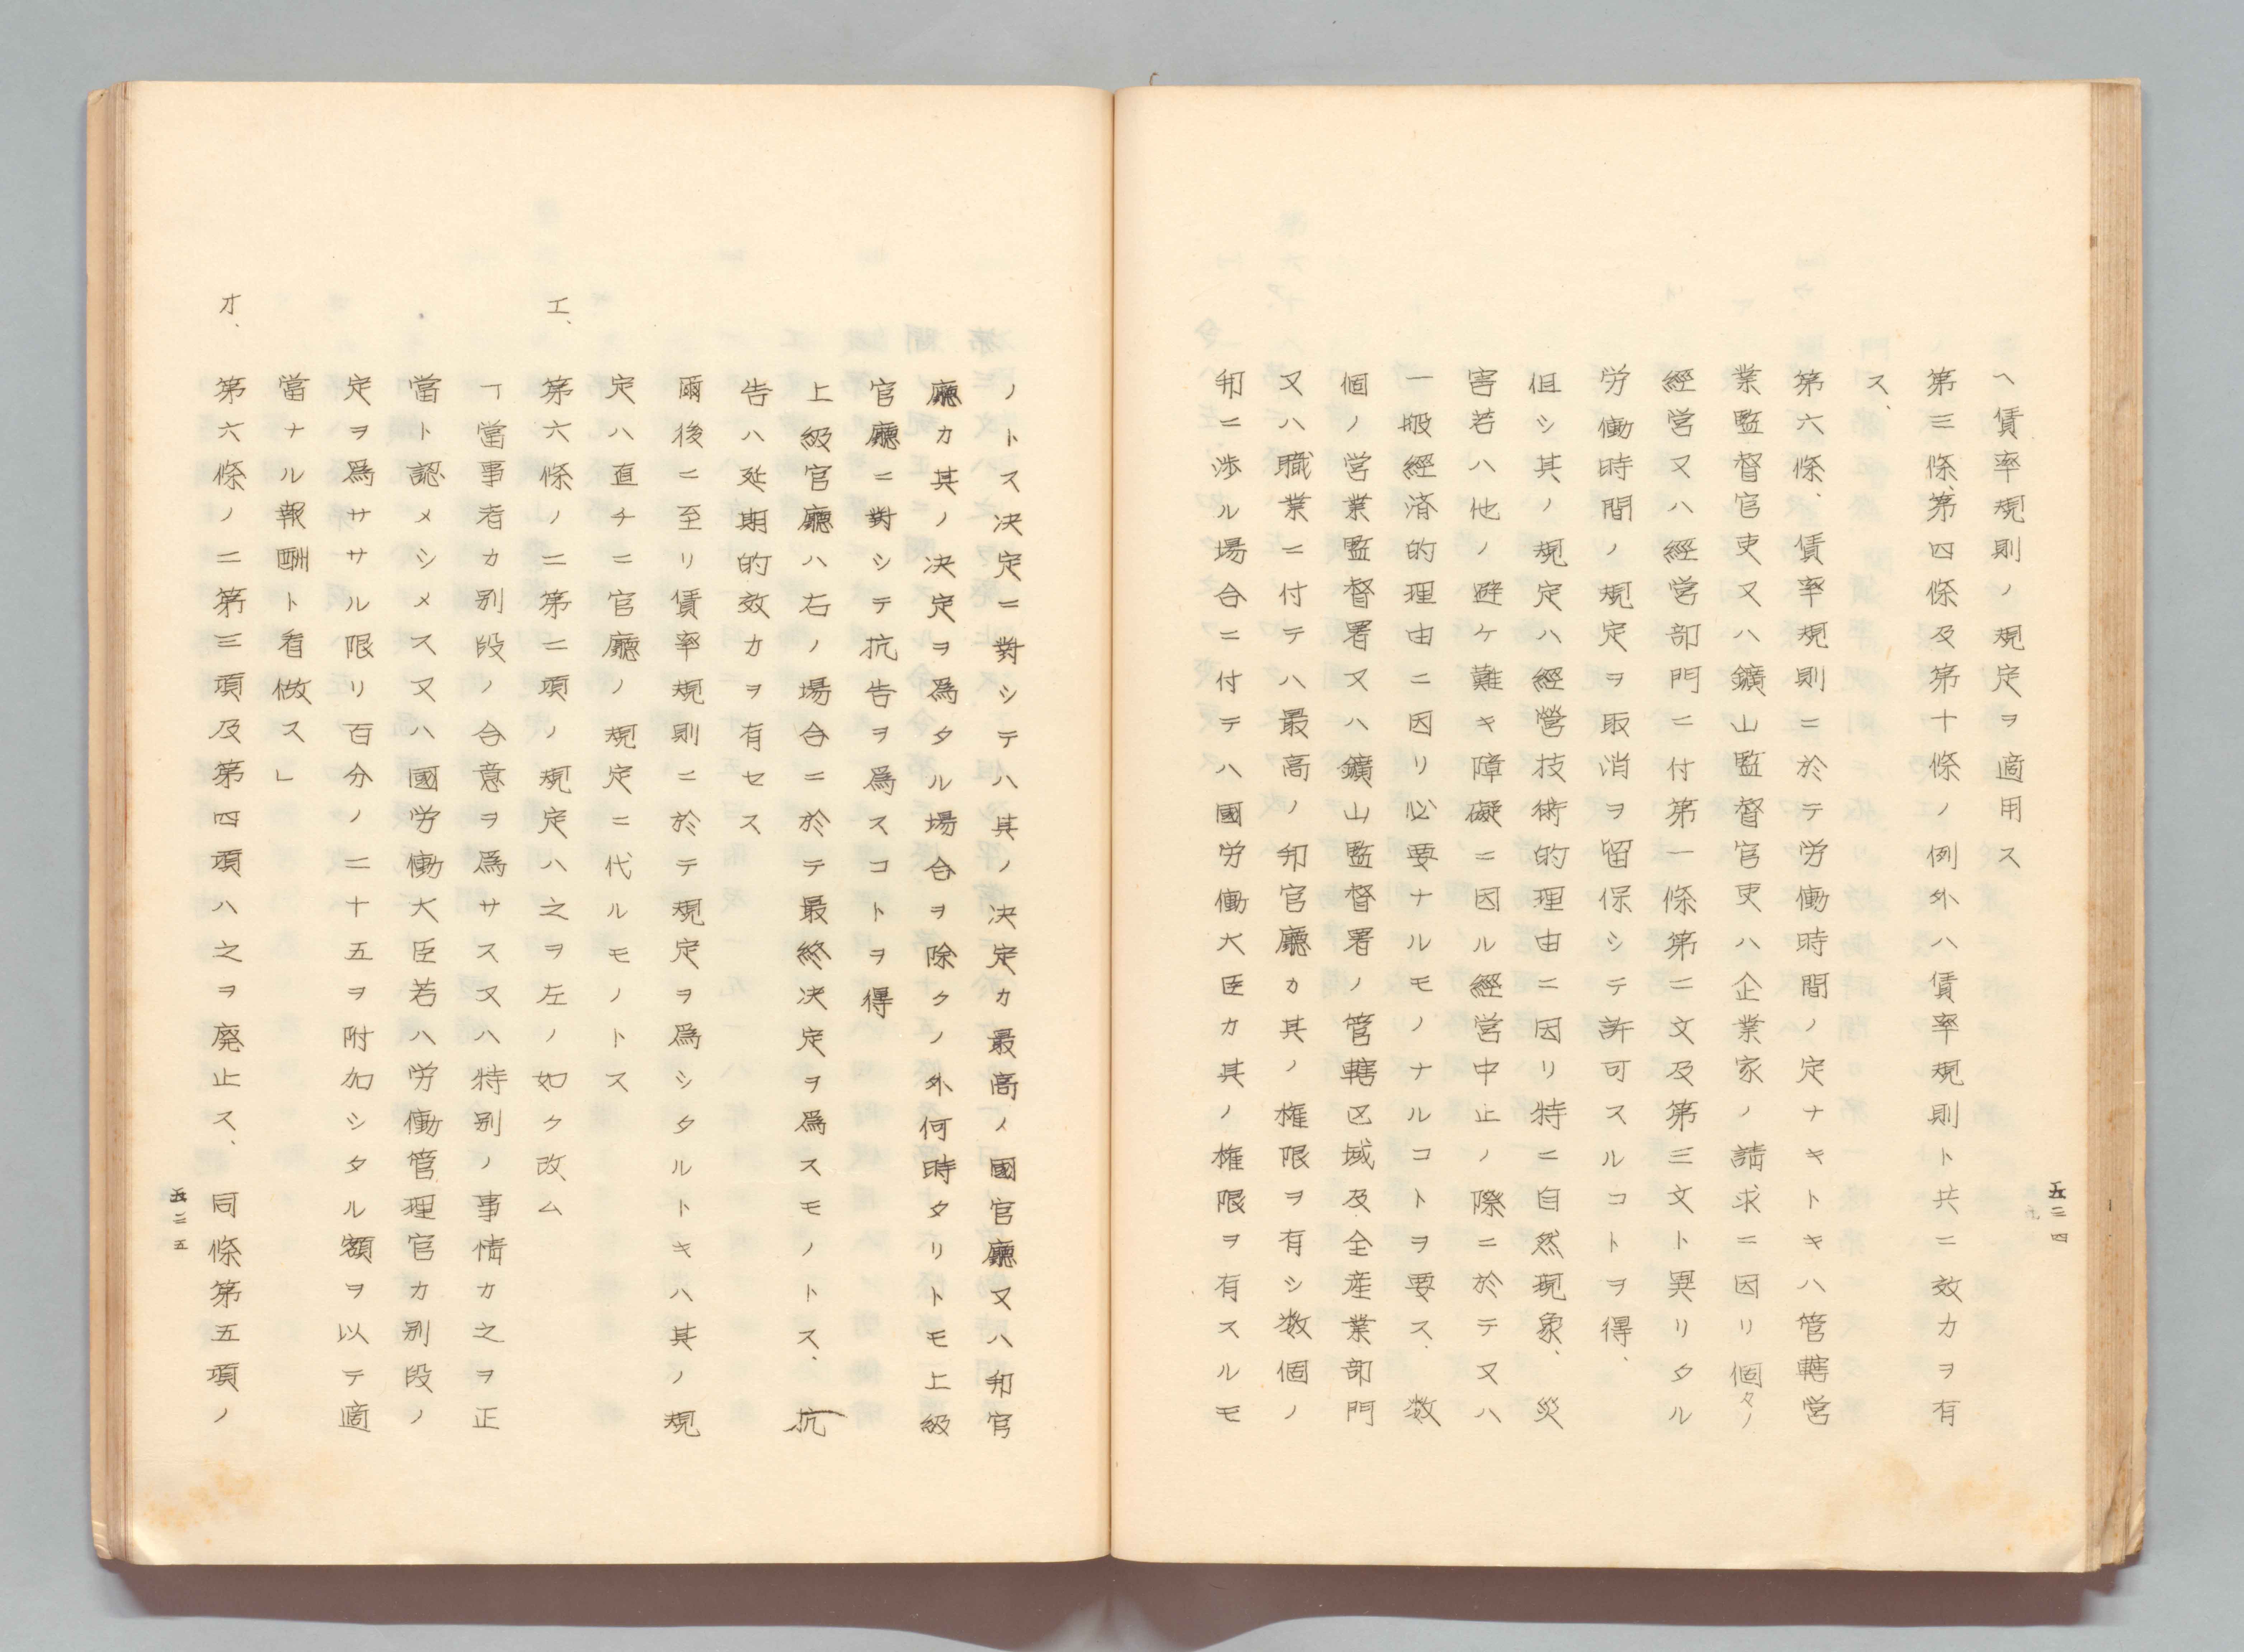 ヘ賃率規則ノ規定ヲ適用ス
第三條、第四條及第十條ノ例外ハ賃率規則ト共ニ效力ヲ有
ス、
第六條、賃率規則ニ於テ労働時間ノ定ナキトキハ管轄営
業監督官吏又ハ鑛山監督官吏ハ企業家ノ請求ニ因リ個々ノ
經営又ハ經営部門ニ付第一條第二文及第三文ト異リタル
労働時間ノ規定ヲ取消ヲ留保シテ許可スルコトヲ得、
但シ其ノ規定ハ經營技術的理由ニ因リ特ニ自然現象、災
害若ハ他ノ避ケ難キ障礙ニ因ル經営中止ノ際ニ於テ又ハ
一般經済的理由ニ因リ必要ナルモノナルコトヲ要ス、数
個ノ営業監督署又ハ鑛山監督署ノ管轄区域及全産業部門
又ハ職業ニ付テハ最高ノ邦官廳カ其ノ権限ヲ有シ数個ノ
邦ニ渉ル場合ニ付テハ國労働大臣カ其ノ権限ヲ有スルモ
五二四
ノトス決定ニ對シテハ其ノ決定カ最高ノ國官廳又ハ邦官
廳カ其ノ決定ヲ爲タル場合ヲ除クノ外何時タリトモ上級
官廳ニ對シテ抗告ヲ爲スコトヲ得
上級官廳ハ右ノ場合ニ於テ最終決定ヲ爲スモノトス、抗
告ハ延期的效力ヲ有セス
爾後ニ至リ賃率規則ニ於テ規定ヲ爲シタルトキハ其ノ規
定ハ直チニ官廳ノ規定ニ代ルモノトス
エ、第六條ノ二第二項ノ規定ハ之ヲ左ノ如ク改ム
「當事者カ別段ノ合意ヲ爲サス又ハ特別ノ事情カ之ヲ正
當ト認メシメス又ハ國労働大臣若ハ労働管理官カ別段ノ
定ヲ爲ササル限リ百分ノ二十五ヲ附加シタル額ヲ以テ適
當ナル報酬ト看做ス」
オ、第六條ノ二第三項及第四項ハ之ヲ廃止ス、同條第五項ノ
五二五